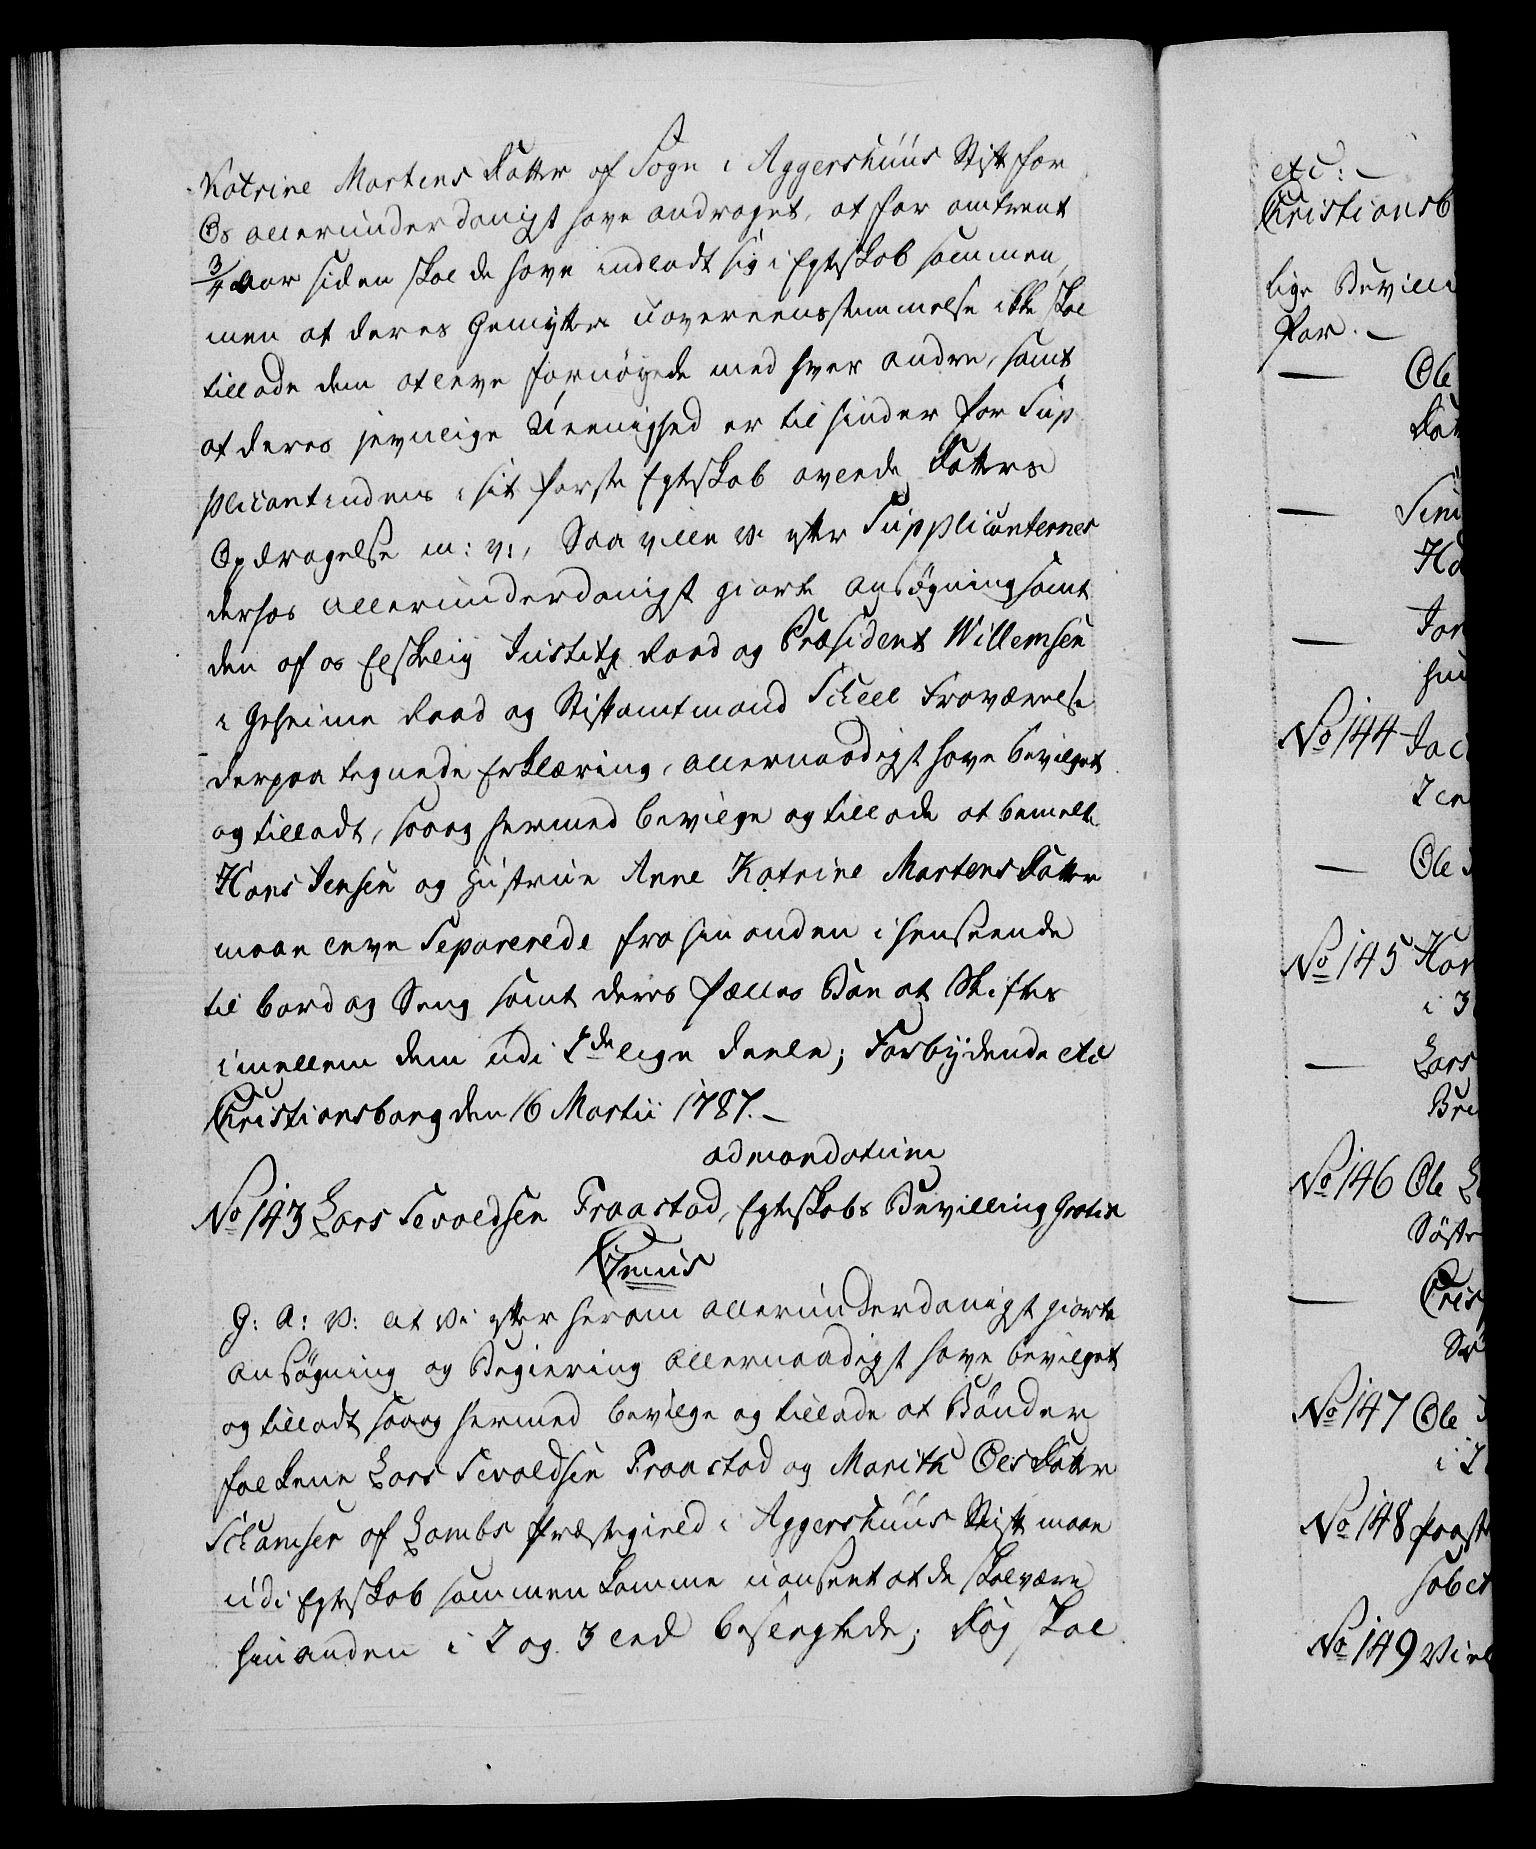 Katrine Martens Datter af Sogn i Aggershuus Stift for
Os allerunderdanigst have andraget, at for omtrent
3/4 Aar siden skal de have indladt sig i Egteskab sammen,
men at deres Gemytters uovereensstemmelse ikke skal
tillade dem at leve fornøyede med hver andre, samt
at deres jevnlige Ueenighed er til hinder for Sup
plicantindens i sit første Egteskab avlede Døttres
Opdragelse m: v:, Saa ville Vi efter Supplicanternes
derhos allerunderdanigst giorte ansøgning samt
den af os Elskelig Justitz Raad og Præsident Willemsen
i Geheime Raad og Stiftamtmand Scheel Fraværelse
derpaa tegnede Erklæring, allernaadigst have bevilget
og tilladt, saa og hermed bevilge og tillade at bemelte
Hans Jensen og Hustrue Anne Katrine Martens Datter
maae leve Separerede fra hinanden i henseende
til bord og Seng samt deres fælles Boe at Skiftes
imellem dem udi 2de lige deele; Forbydende etc
Christiansborg den 16 Martii 1787. –
ad mandatum
No 143 Lars Sevaldsen Fraastad, Egteskabs Bevilling Gratis
G: A: V: at Vi efter herom allerunderdanigst giorte
ansøgning og Begiering allernaadigst have bevilget
og tilladt saa og hermed bevilge og tillade at Bønder
folkene Lars Sevaldsen Fraastad og Marith Oles Datter
af Lombs Præstegield i Aggershuus Stift maae
udi Egteskab sammen komme uanseet at de skal være
hinanden i 2 og 3 Led beslegtede; Dog skal
etc: –
Christiansb
lige Bevill
for. –
— Ole
— Simo
Ha
—
No 144 Jac
— Ole
No 145 Han
i 3
— Lars
Bre
No 146 Ole
Søste
— Cris
No 147 Ole
i 2
No 148
No 149